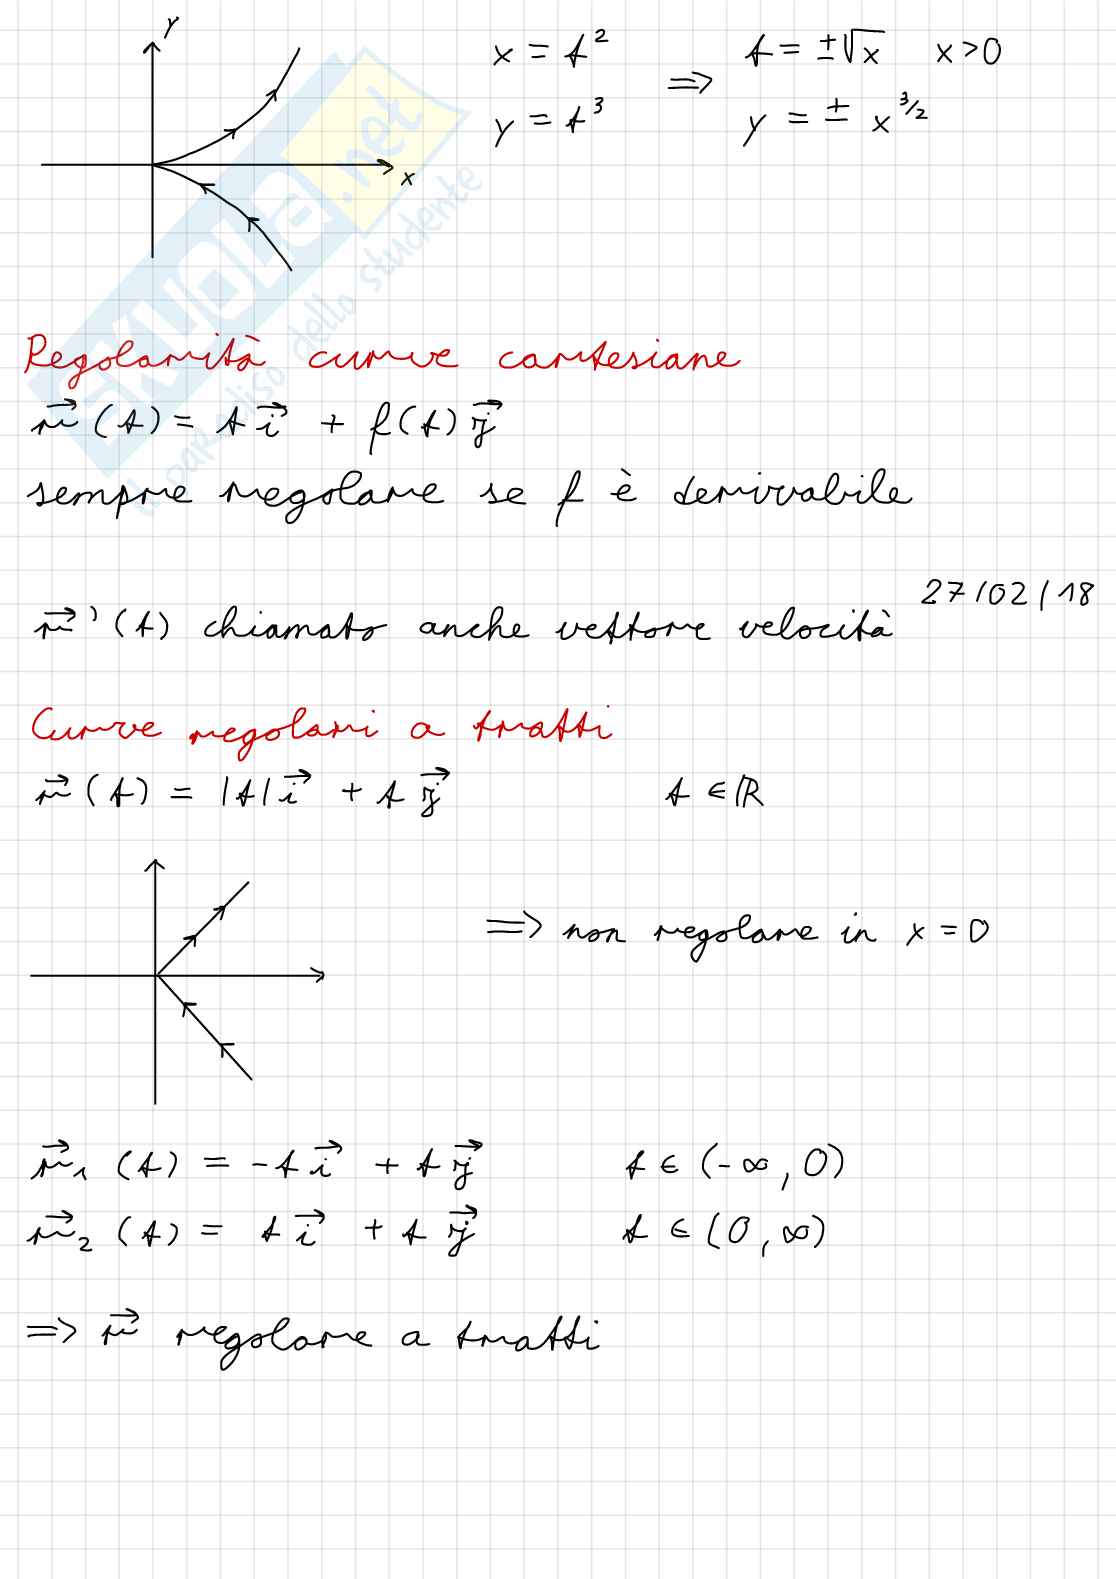 y
x = t² ⇒ t = ±√x x > 0
y = t³ y = ± x^3/2
x
SKUOLA.net
il paradiso dello studente
Regolarità curve cartesiane
r⃗(t) = t i⃗ + f(t) j⃗
sempre regolare se f è derivabile
27/02/18
r⃗'(t) chiamato anche vettore velocità
Curve regolari a tratti
r⃗(t) = |t| i⃗ + t j⃗ t ∈ ℝ
⇒ non regolare in x = 0
r⃗₁(t) = -t i⃗ + t j⃗ t ∈ (-∞, 0)
r⃗₂(t) = t i⃗ + t j⃗ t ∈ (0, ∞)
⇒ r⃗ regolare a tratti